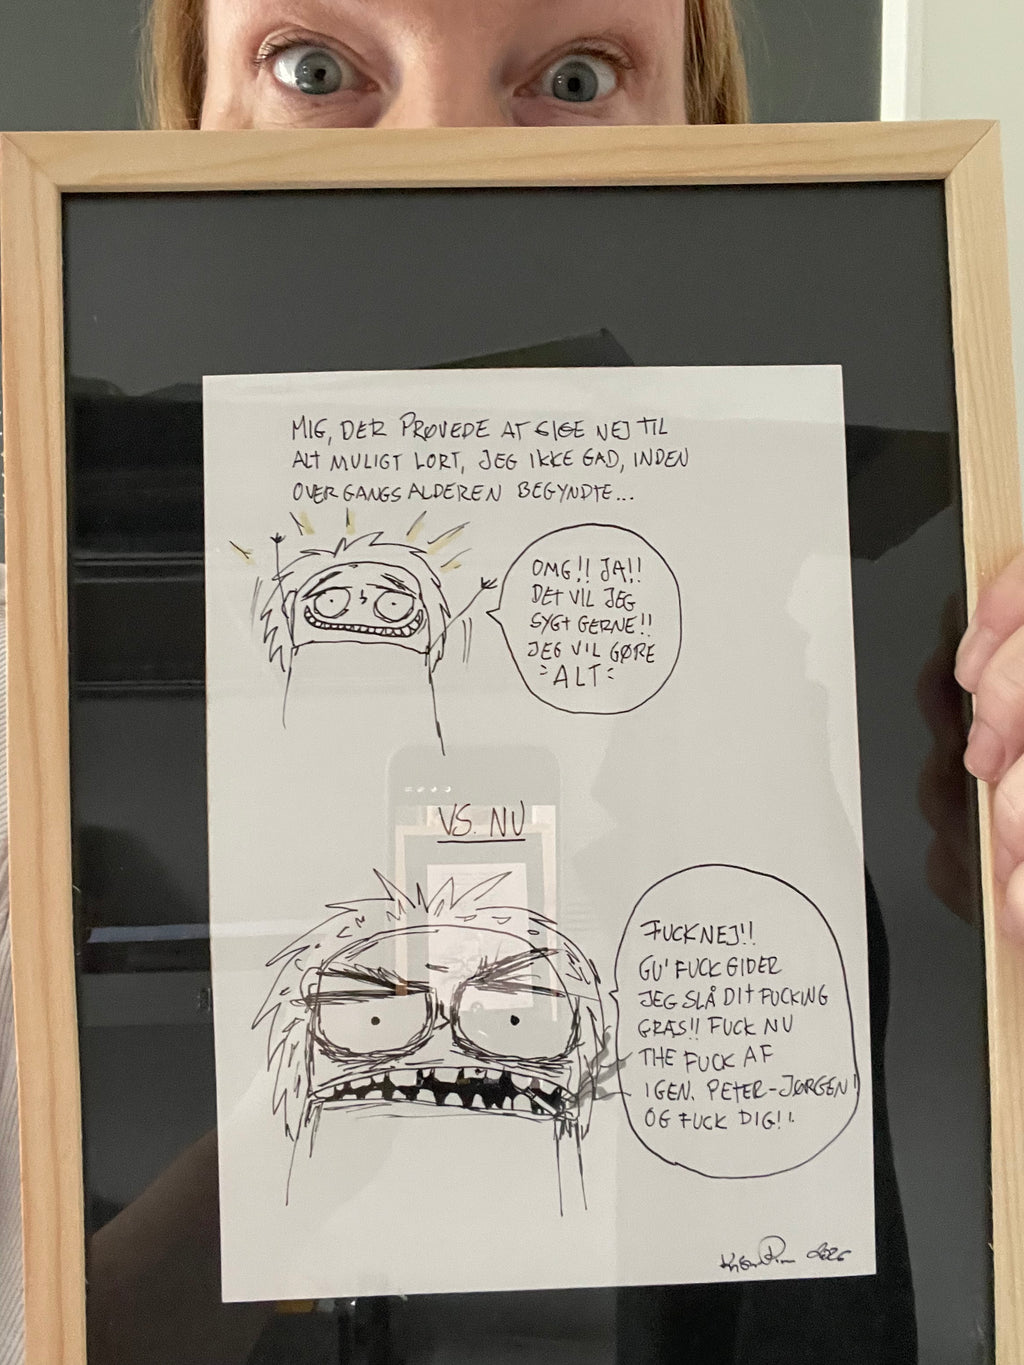 MIG, DER PRØVEDE AT SIGE NEJ TIL
ALT MULIGT LORT, JEG IKKE GAD, INDEN
OVERGANGSALDEREN BEGYNDTE...
OMG!! JA!!
DET VIL JEG
SYGT GERNE!!
JEG VIL GØRE
ALT
VS. NU
FUCK NEJ!!
GU' FUCK GIDER
JEG SLÅ DIT FUCKING
GRÆS!! FUCK NU
THE FUCK AF
IGEN, PETER-JØRGEN!
OG FUCK DIG!!
2026